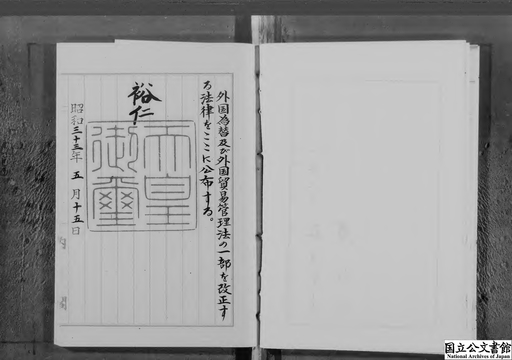 外国為替及び外国貿易管理法の一部を改正す
る法律をここに公布する。
裕仁
天皇
御璽
昭和三十三年五月十五日
国立公文書館
National Archives of Japan